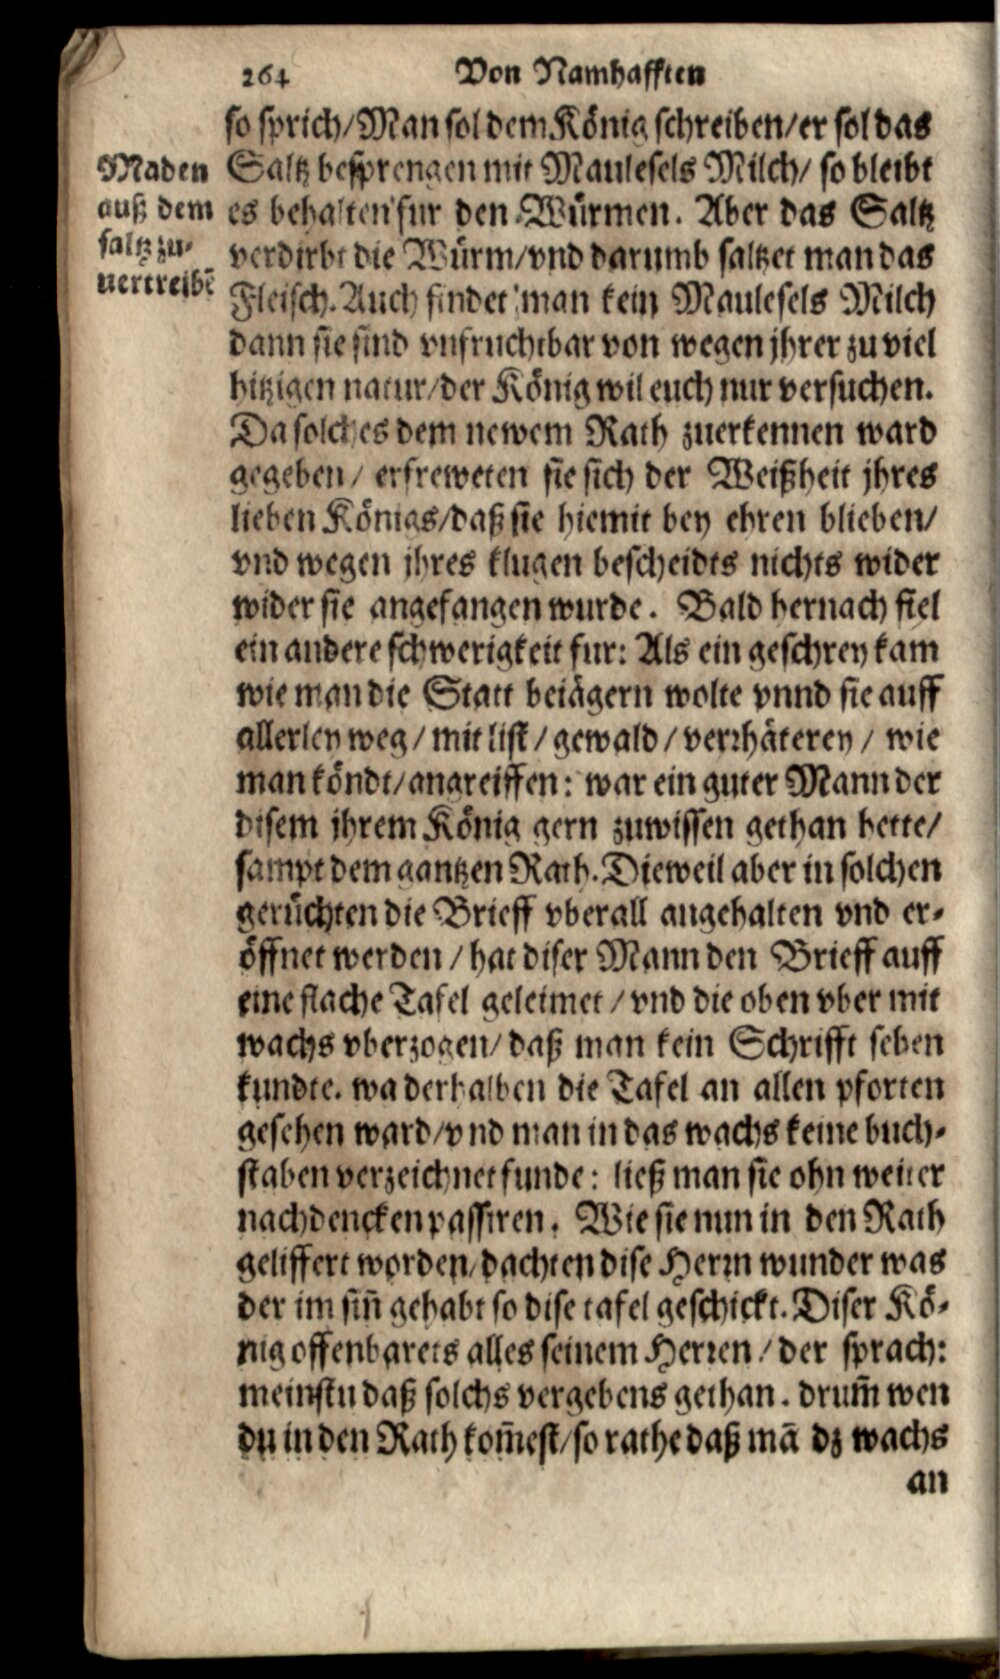 264 Von Namhafften
so sprich/Man sol dem König schreiben/er sol das
Saltz besprengen mit Maulesels Milch/ so bleibt
es behalten fur den Würmen. Aber das Saltz
verdirbt die Würm/vnd darumb saltzet man das
Fleisch. Auch findet man kein Maulesels Milch
dann sie sind vnfruchtbar von wegen jhrer zu viel
hitzigen natur/der König wil euch nur versuchen.
Da solches dem newem Rath zuerkennen ward
gegeben/ erfreweten sie sich der Weißheit jhres
lieben Königs/daß sie hiemit bey ehren blieben/
vnd wegen jhres klugen bescheidts nichts wider
wider sie angefangen wurde. Bald hernach fiel
ein andere schwerigkeit fur: Als ein geschrey kam
wie man die Statt beiägern wolte vnnd sie auff
allerley weg/ mit list/ gewald/ verrhäterey/ wie
man köndt/angreiffen: war ein guter Mann der
disem jhrem König gern zuwissen gethan hette/
sampt dem gantzen Rath. Dieweil aber in solchen
gerüchten die Brieff vberall angehalten vnd er-
öffnet werden/ hat diser Mann den Brieff auff
eine flache Tafel geleimet/ vnd die oben vber mit
wachs vberzogen/ daß man kein Schrifft sehen
kundte. wa derhalben die Tafel an allen pforten
gesehen ward/vnd man in das wachs keine buch-
staben verzeichnet funde: ließ man sie ohn weiter
nachdencken passiren. Wie sie nun in den Rath
geliffert worden/dachten dise Herrn wunder was
der im sin̄ gehabt so dise tafel geschickt. Diser Kö-
nig offenbarets alles seinem Herren/ der sprach:
meinstu daß solchs vergebens gethan. drum̄ wen
du in den Rath kom̄est/so rathe daß mā dz wachs
an
Maden
auß dem
saltz zu-
uertreibē